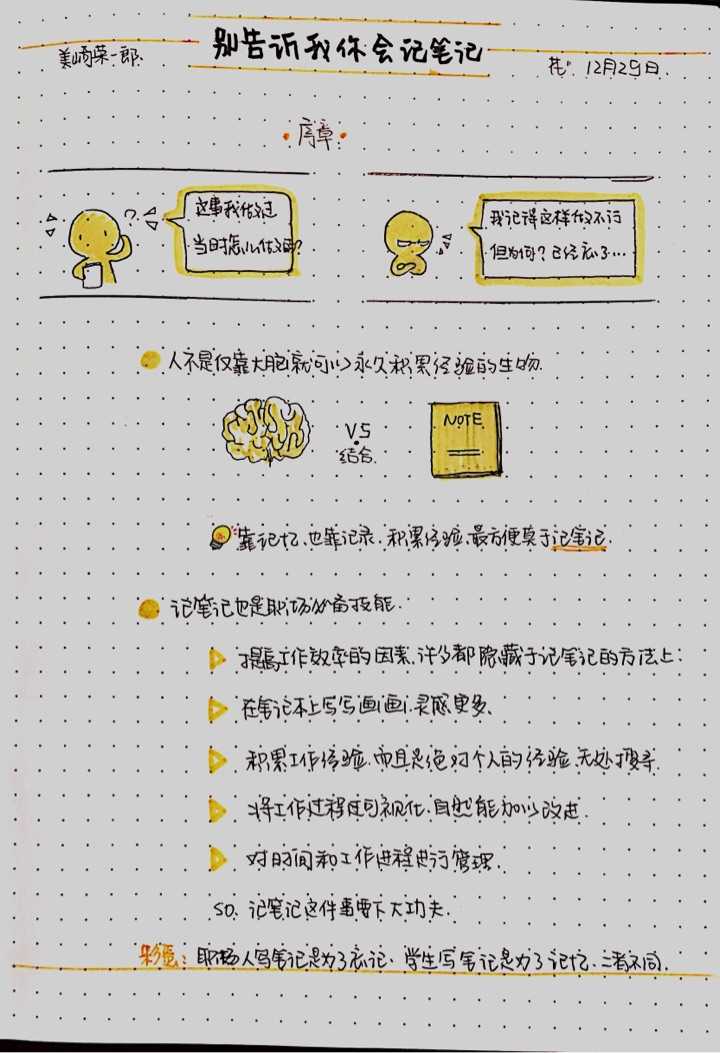 别告诉我你会记笔记
美崎荣一郎.
12月29日.
序章.
?
这事我做过
当时怎么做的?
我记得这样做不行
但为何?已经忘了…
人不是仅靠大脑就可以永久积累经验的生物.
VS
结合.
NOTE
靠记忆、也靠记录.积累经验、最方便莫于记笔记.
记笔记也是职场必备技能.
提高工作效率的因素、许多都隐藏于记笔记的方法上.
在笔记本上写写画画、灵感更多、
积累工作经验、而且是绝对个人的经验、无处搜寻.
将工作过程可视化、自然能加以改进.
对时间和工作进程进行管理.
SO、记笔记这件事要下大功夫.
彩蛋:职场人写笔记是为了忘记、学生写笔记是为了记忆、二者不同.